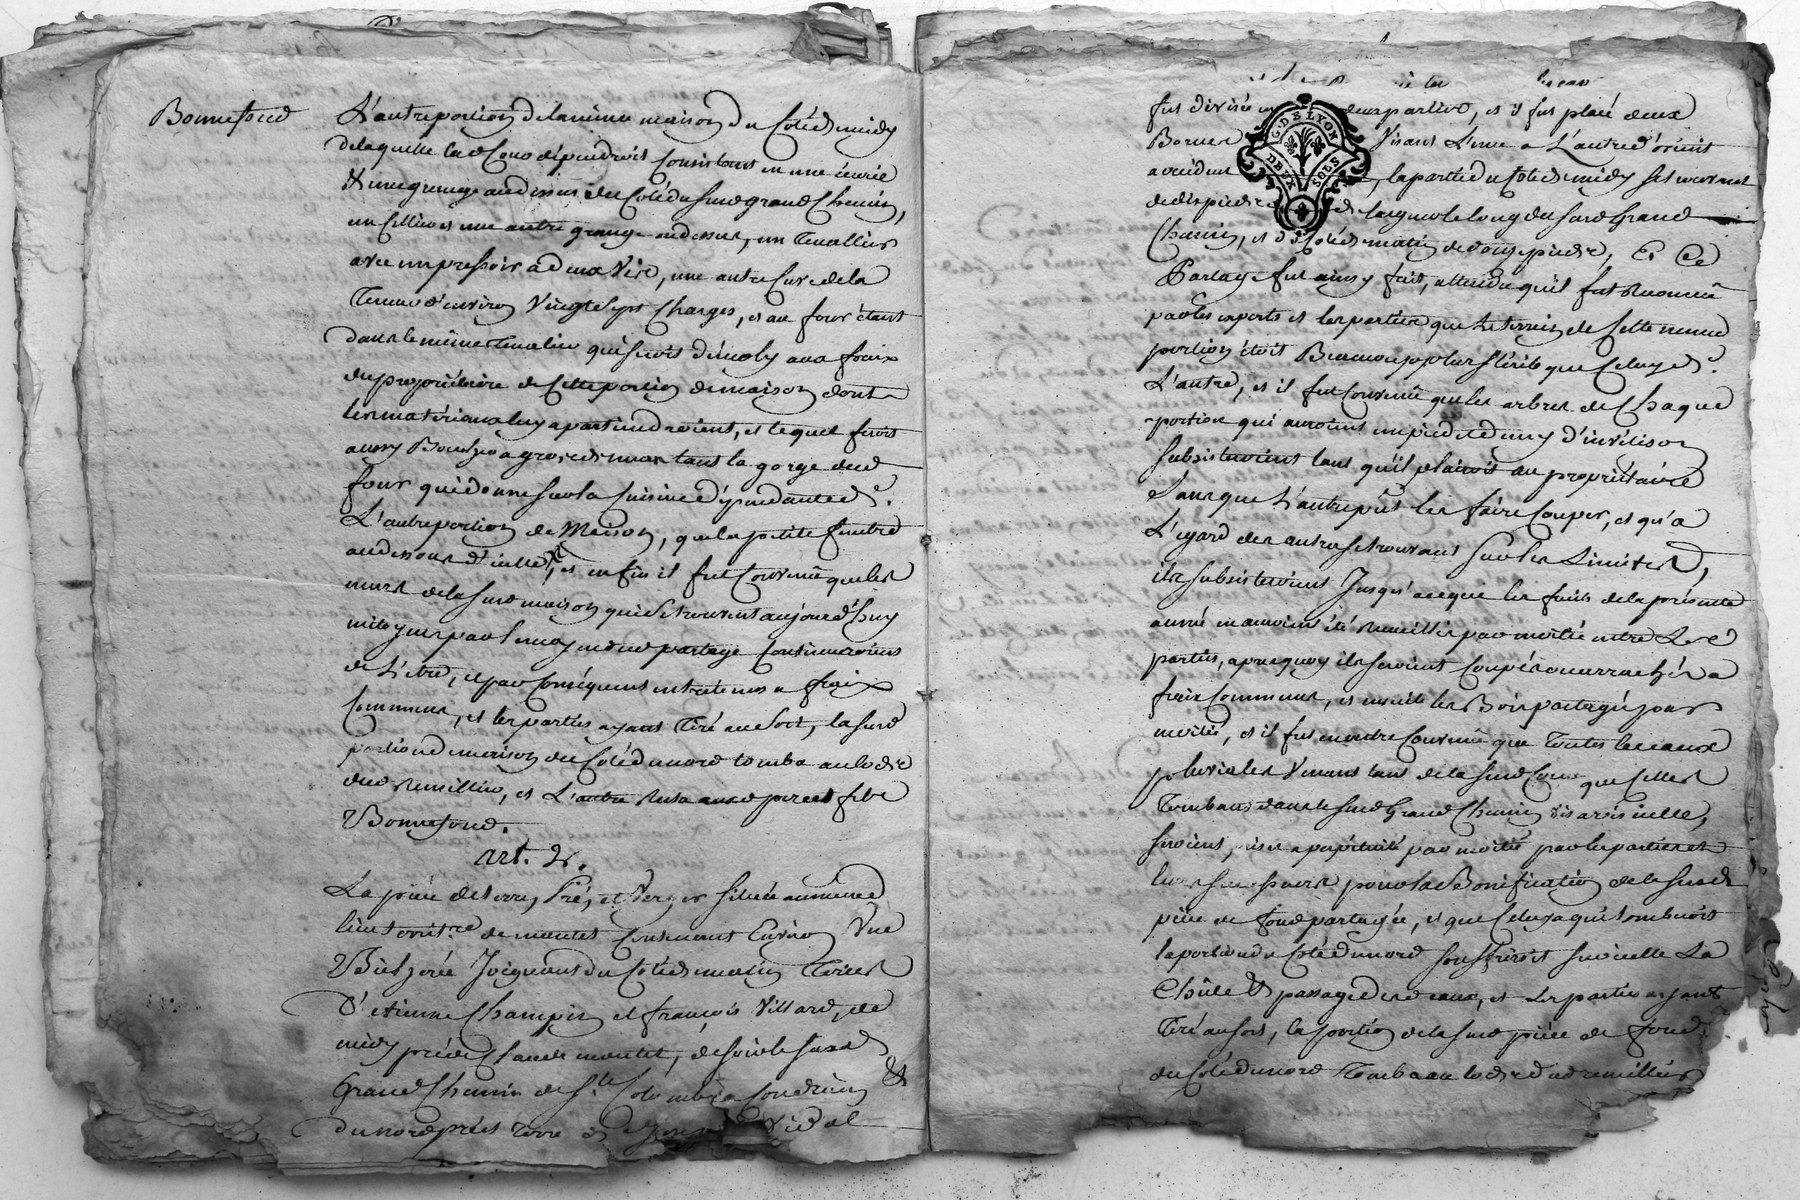 Bonnefond
L'autre portion de la même maison du Coté de midy
de laquelle la d Cour dépendroit Consistant en une écurie
& une grange au dessus du Coté du susd grand Chemin,
un Cellier et une autre grange au dessus, un Tenallier
avec un pressoir à deux Vis, une autre Cuve de la
Tenue d'environ Vingt sept Charges, et au four étant
dans le même Tenalier qui seroit démoly aux fraix
du propriétaire de Cette portion de maison dont
les matériaux luy apartiendroient, et lequel feroit
aussy Boucher à gros de mur tant la gorge dud
four qui donne sur la Cuisine dépendante de
L'autre portion de Maison, que la petite fenêtre
au dessous d'icelle, et enfin il fut Convenu que les
murs de la susd maison qui se trouvent aujourd'huy
mitoyens par le moyen dud partage Continueroient
de L'être, et par Conséquent entretenus a fraix
Communs, et les parties ayant Tiré au sort, la susd
portion de maison du Coté du nord tomba au lot de
dud Remillier, et L'autre resta aux d pere et fils
Bonnefond.
art. 2.
La pièce de terre, Pré, et Verger située au même
lieu territ.re de montet Contenant Environ Une
Bicherée Joignant du Coté de matin Terres
d'etienne Champin et françois Villard, de
midy pré de Claude montet, de soir le susd
Grand Chemin de S.te Colombe a Condrieu &
du nord pré et Terre de Vidal
fut divisée en deux parties, et il fut placé deux
Bornes Visant L'une a L'autre d'orient
a occident, la partie du Coté de midy se trouvant
de dix pieds de largeur le long du susd Grand
Chemin, et du Coté de matin de vingt pieds, Et Ce
Partage fut ainsy fait, attendu qu'il fut Reconnu
par les experts et les parties que le terrein de Cette même
portion étoit Beaucoup plus stérile que Celuy de
L'autre, et il fut Convenu que les arbres de Chaque
portion qui auroient un pied et demy d'invetison
subsisteroient tant qu'il plairoit au propriétaire
sans que L'autre pût les faire Couper, et qu'a
L'egard des autres se trouvant sur les Limites,
ils subsisteroient Jusqu'a ce que les fruits de la présente
année en auroient été Recueillis par moitié entre Les
parties, apres quoy ils seroient Coupés ou arrachés a
fraix Communs, et ensuite les Bois partagés par
moitié, et il fut en outre Convenu que Toutes les eaux
pluviales Venant tant de la susd Cour que Celles
Tombant dans le susd Grand Chemin vis a vis icelle,
seroient prises a perpétuité par moitié par les parties et
leurs successeurs pour la Bonification de la susd
pièce de fond partagée, et que Celuy a qui tomberoit
la portion du Coté du nord souffriroit sur icelle La
Chûte & passage des d eaux, et Les parties ayant
Tiré au sort, la portion de la susd pièce de fond
du Coté du nord Tomba au lot de dud remillier
G. DE LYON
DEUX SOUS